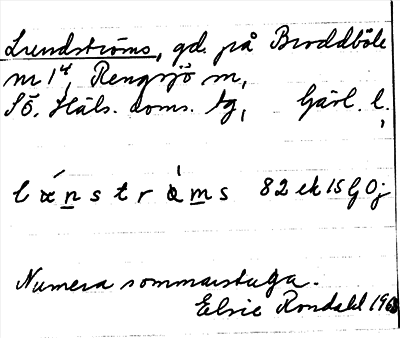 Lundströms, gd. på Broddböle
nr 1⁴, Rengsjö sn,
Sö. Häls. doms. tg, Gävl. l.
lænstrøms 82 ek 15 G Oj
Numera sommarstuga.
Elsie Rondahl 1968